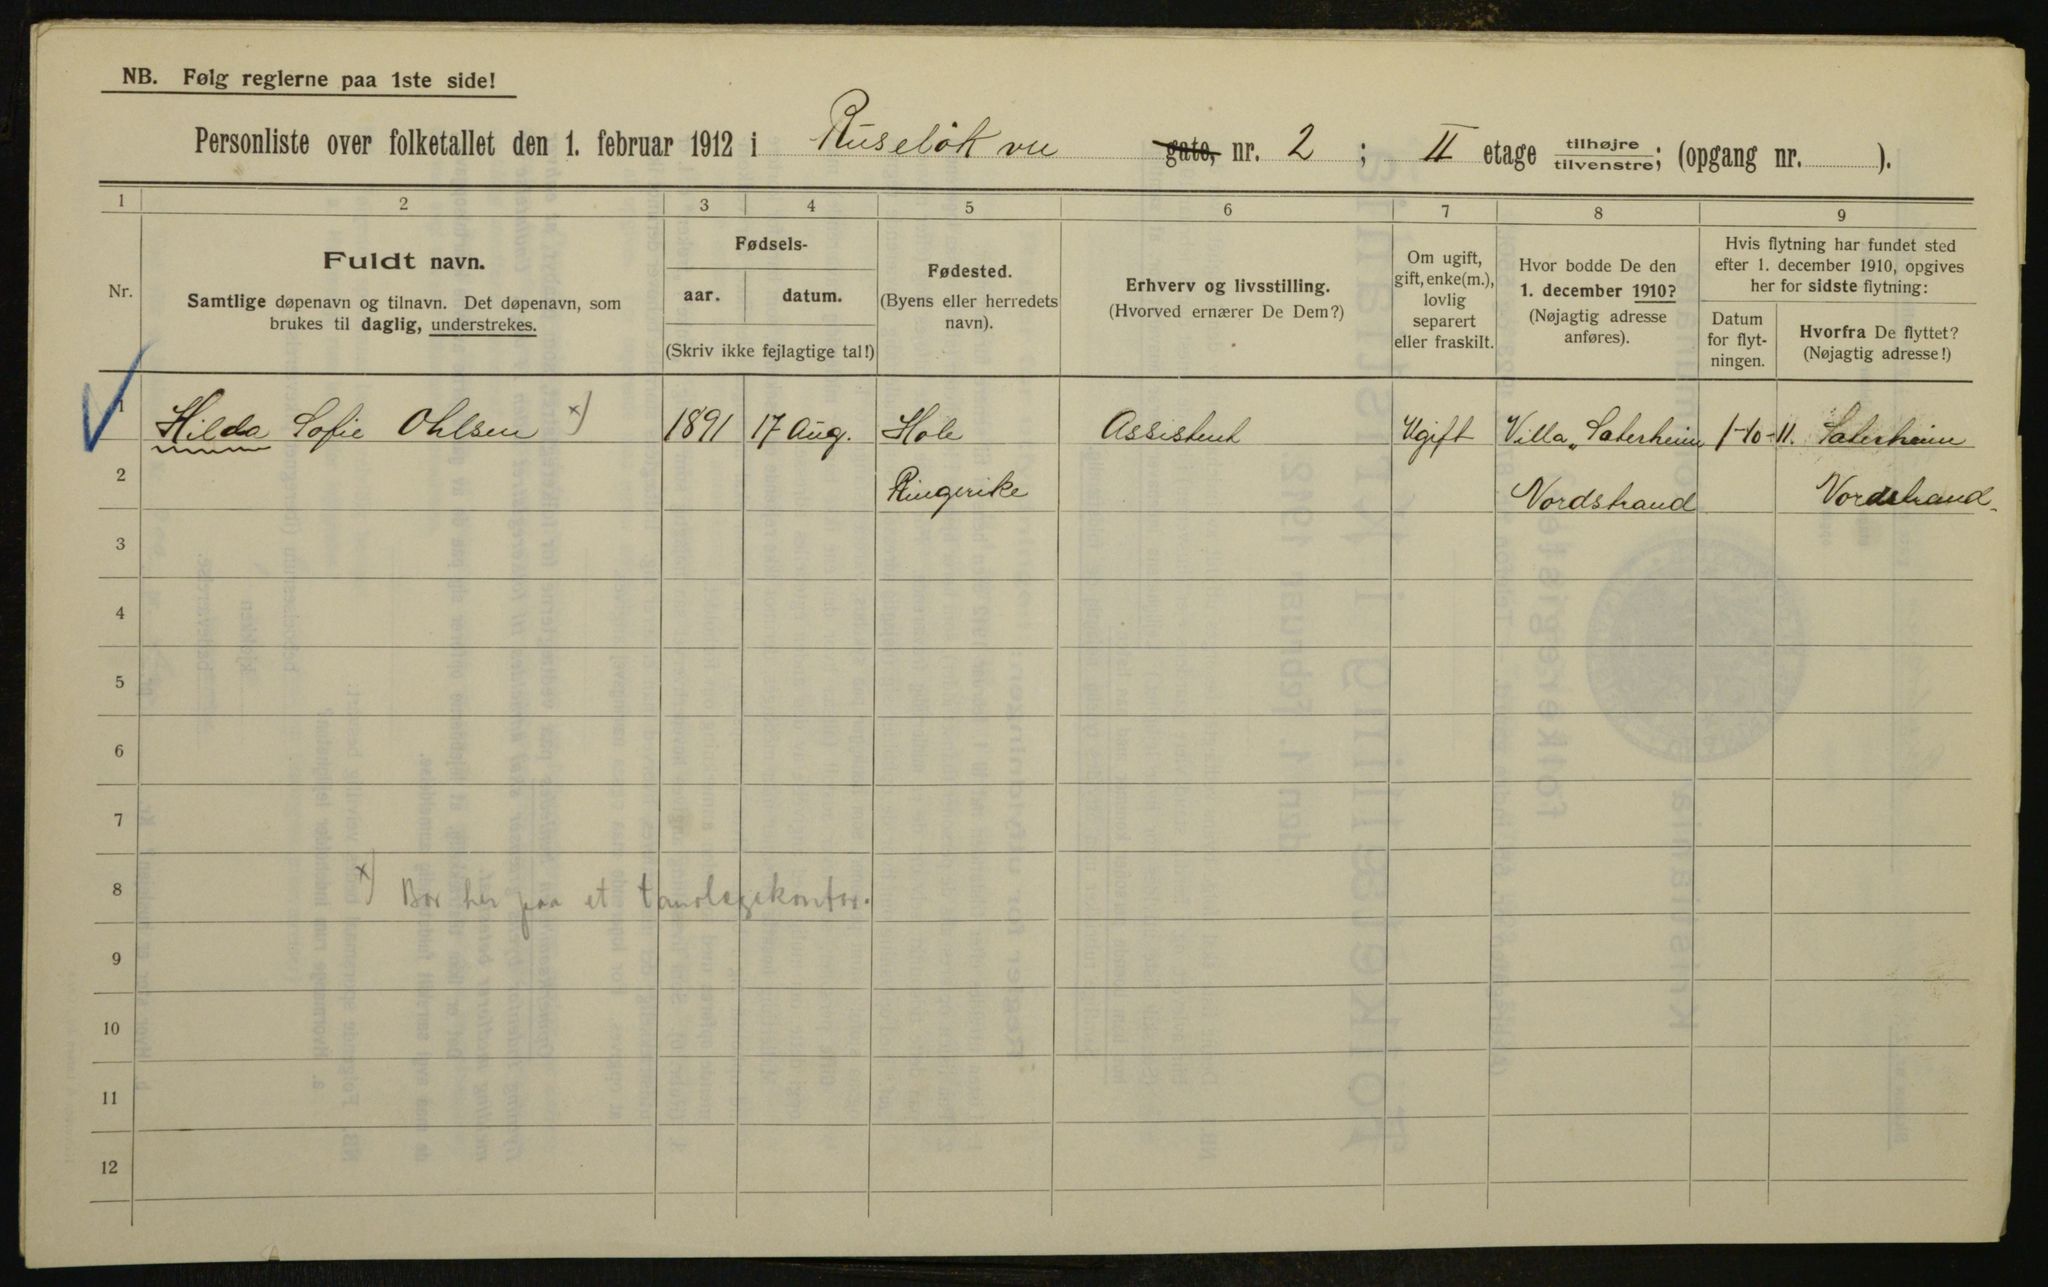 NB. Følg reglerne paa 1ste side!
Personliste over folketallet den 1. februar 1912 i Ruseløkvei gate, nr. 2 ; II etage tilhøjre tilvenstre; (opgang nr. ).
1 2 3 4 5 6 7 8 9
Nr.
Fuldt navn.
Samtlige døpenavn og tilnavn. Det døpenavn, som
brukes til daglig, understrekes.
Fødsels-
aar. datum.
(Skriv ikke fejlagtige tal!)
Fødested.
(Byens eller herredets
navn).
Erhverv og livsstilling.
(Hvorved ernærer De Dem?)
Om ugift,
gift, enke(m.),
lovlig
separert
eller fraskilt.
Hvor bodde De den
1. december 1910?
(Nøjagtig adresse
anføres).
Hvis flytning har fundet sted
efter 1. december 1910, opgives
her for sidste flytning:
Datum
for flyt-
ningen.
Hvorfra De flyttet?
(Nøjagtig adresse!)
1 Hilda Sofie Ohlsen x) 1891 17 Aug. Hole Assistent Ugift Villa „Saterheim 1-10-11. Saterheim
2 Ringerike Nordstrand Nordstrand.
3
4
5
6
7
8 x) Bor her paa et tandlægekontor.
9
10
11
12